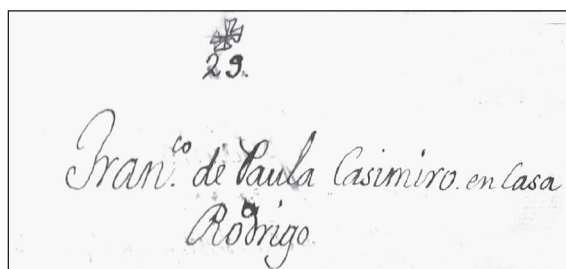 29.
Fran.co de Paula Casimiro. en Casa
Rodrigo